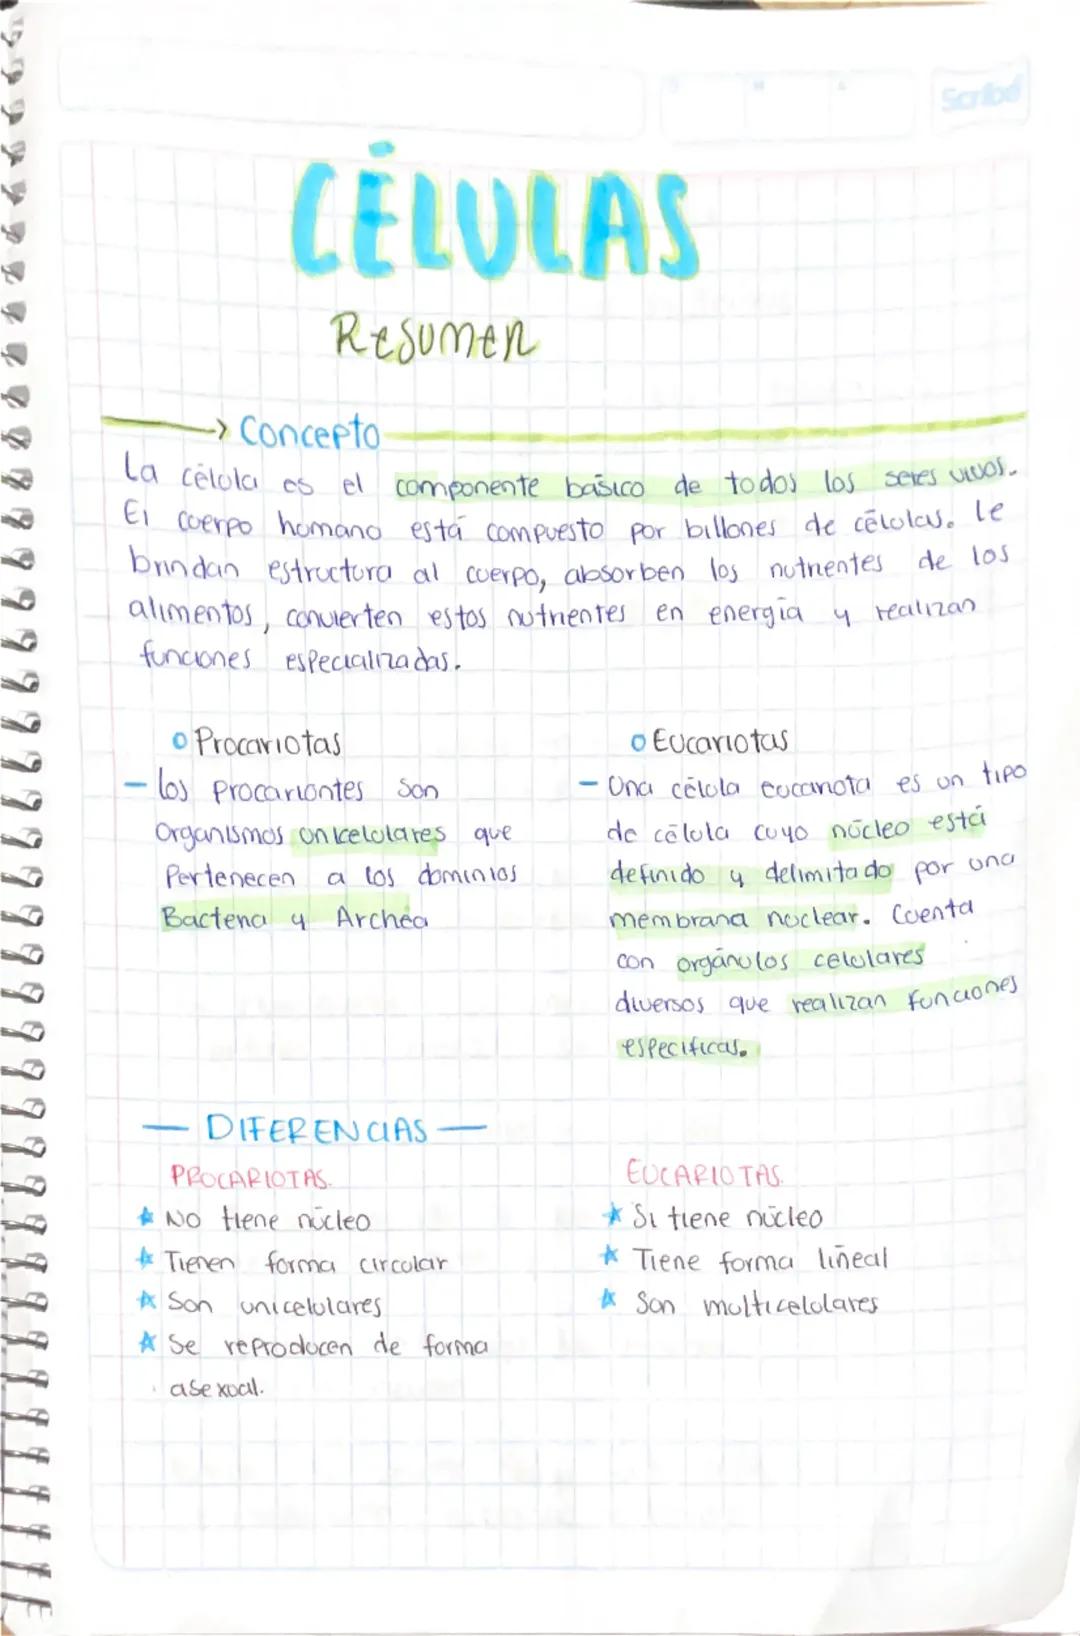 Scribe
CÉLULAS
Resumen
→ Concepto
La célula es el componente básico de todos los seres vivos.
El cuerpo humano está compuesto por billones de células. Le
brindan estructura al cuerpo, absorben los nutrientes de los
alimentos, convierten estos nutrientes en energía y realizan
funciones especializadas.
Procariotas
- los Procariontes son
Organismos unicelulares que
Pertenecen a los dominios
Bacteria y Archéa
Eucariotas
- Una célula eucariota es un tipo
de célula cuyo núcleo está
definido y delimitado por una
membrana nuclear. Cuenta
con orgánulos celulares
diversos que realizan funciones
especificas.
— DIFERENCIAS —
PROCARIOTAS.
★ No tiene núcleo
★ Tienen forma circular
★ Son unicelulares
★ Se reproducen de forma
asexual.
EUCARIOTAS.
★ Si tiene núcleo
★ Tiene forma lineal
★ Son multicelulares